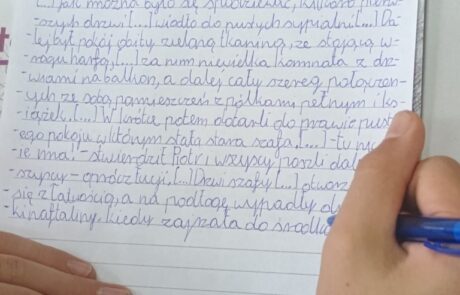 [...] jak można było się spodziewać, kilkoro pierw-
-szych drzwi [...] wiodło do pustych sypialni [...] Da-
-lej był pokój obity zieloną tkaniną, ze stojącą w-
-rogu harfą, [...] za nim niewielka komnata z drz-
-wiami na balkon, a dalej cały szereg połączon-
-ych ze sobą pomieszczeń z półkami pełnymi ks-
-iążek. [...] Wkrótce potem dotarli do prawie pust
-ego pokoju w którym stała stara szafa. [...] -tu nic
-ie ma! - stwierdził Piotr i wszyscy poszli dal
-szycy - oprócz Łucji. [...] Drzwi szafy [...] otworz
-się z łatwością, a na podłogę wypadły
-ki naftaliny. Kiedy zajrzała do środka